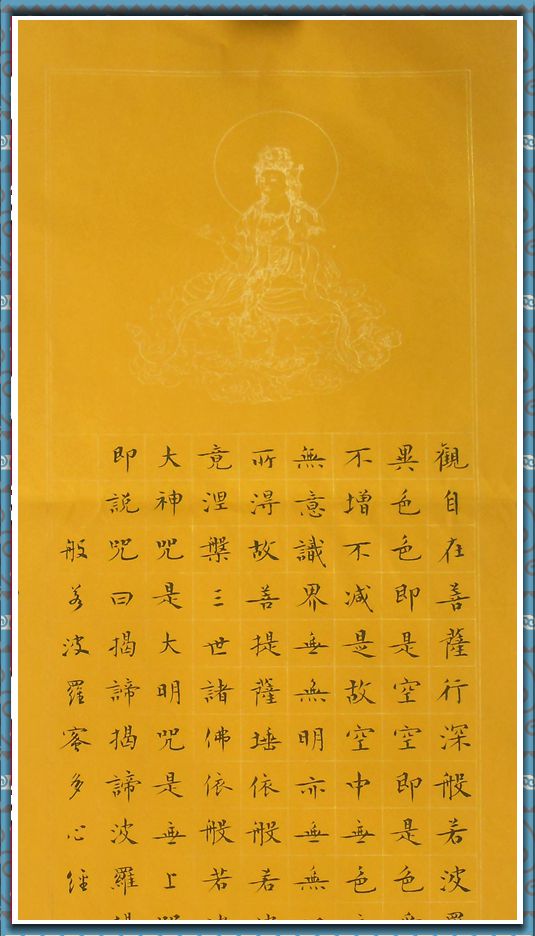 觀自在菩薩行深般若波羅
異色色即是空空即是色受
不增不减是故空中無色
無意識界無無明亦無無
所淂故菩提薩埵依般若波
竟涅槃三世諸佛依般若波
大神咒是大明咒是無上咒
即説咒曰揭諦揭諦波羅揭
般若波羅蜜多心経